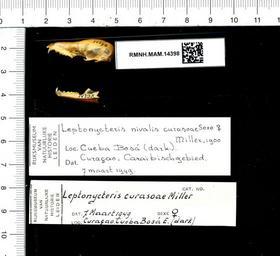 0 1 2 3 4 5 6 7 8 9 10 11
RMNH.MAM.14398
RIJKSMUSEUM
VAN
NATUURLIJKE
HISTORIE
LEIDEN
Leptonycteris nivalis curasoae Sexe ♀
Miller, 1900
Loc. Cueba Bosá (dark).
Curaçao, Caraibisch gebied,
Dat. 7 maart 1949.
RIJKSMUSEUM
VAN
NATUURLIJKE
HISTORIE
LEIDEN
CAT. NO.
Leptonycteris curasoae Miller
DAT. 7 Maart 1949 ♀
LOC. Curaçao, Cueba Bosá E. (dark)